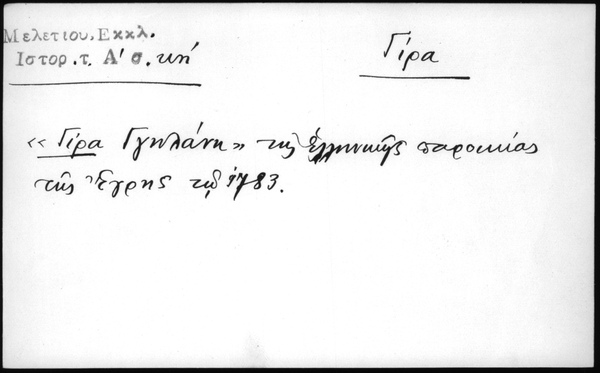 Μελετίου, Εκκλ.
Ιστορ. τ. Α' σ. κή
Γίρα
«Γίρα Γγιωλάνη» τῆς ἑλληνικῆς παροικίας
τῆς Ἔγρης τῷ 1783.